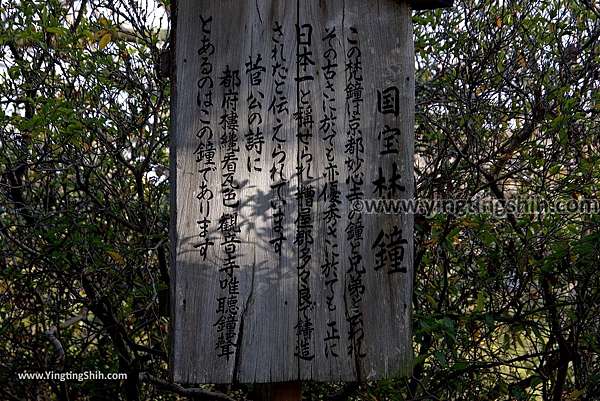 国宝梵鐘
この梵鐘は京都妙心寺の鐘と兄弟といわれ
その古さに於ても亦優秀さに於ても正に
日本一と称せられ糟屋郡多々良で鋳造
されたと伝えられています
菅公の詩に
都府楼纔看瓦色観音寺唯聴鐘聲
とあるのはこの鐘であります
www.YingtingShih.com
www.YingtingShih.com